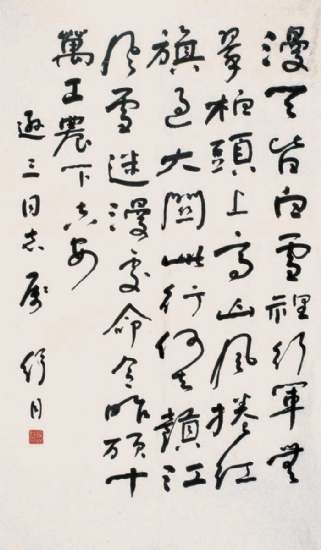 漫天皆白雪裡行軍無
翠柏頭上高山風捲紅
旗過大關此行何去贛江
風雪迷漫處命令昨頒十
萬工農下吉安
三同志屬 舒同